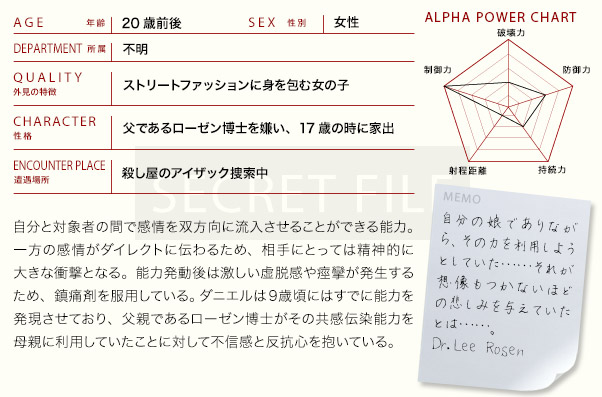 AGE 年齢 20歳前後 SEX 性別 女性
DEPARTMENT 所属 不明
QUALITY
外見の特徴
ストリートファッションに身を包む女の子
CHARACTER
性格
父であるローゼン博士を嫌い、17歳の時に家出
ENCOUNTER PLACE
遭遇場所
殺し屋のアイザック捜索中
SECRET FILE
自分と対象者の間で感情を双方向に流入させることができる能力。
一方の感情がダイレクトに伝わるため、相手にとっては精神的に
大きな衝撃となる。能力発動後は激しい虚脱感や痙攣が発生する
ため、鎮痛剤を服用している。ダニエルは9歳頃にはすでに能力を
発現させており、父親であるローゼン博士がその共感伝染能力を
母親に利用していたことに対して不信感と反抗心を抱いている。
ALPHA POWER CHART
破壊力
制御力
防御力
射程距離
持続力
MEMO
自分の娘でありなが
ら、その力を利用しよう
としていた……それが
想像もつかないほど
の悲しみを与えていた
とは……。
Dr. Lee Rosen